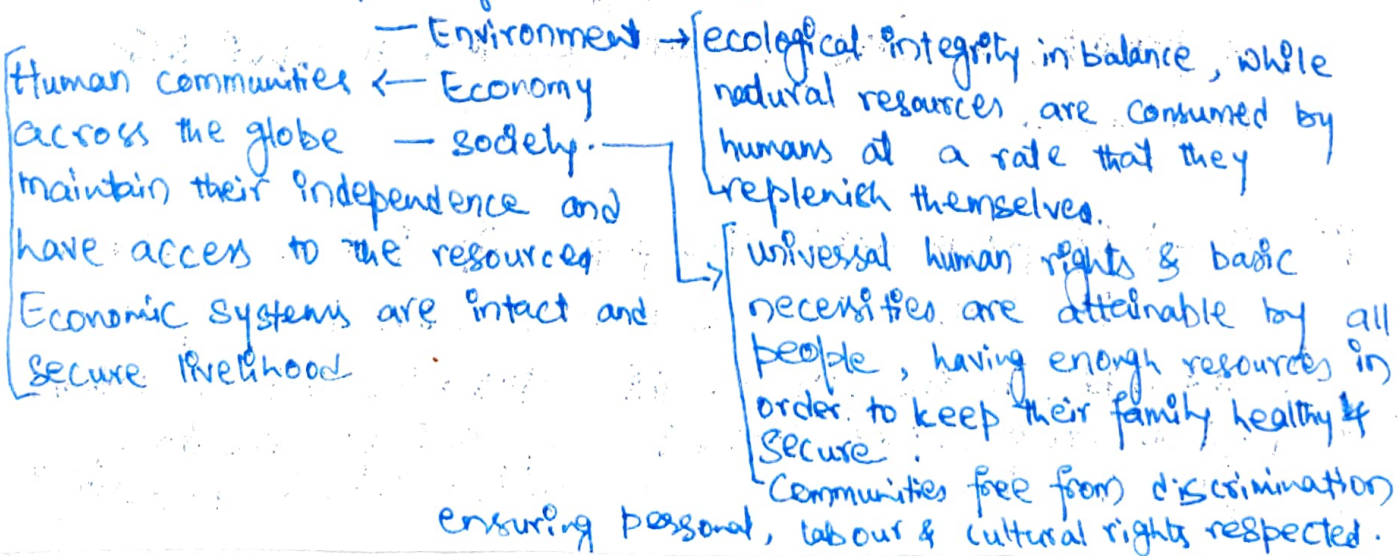 — Environment → ecological integrity in balance, while
natural resources are consumed by
humans at a rate that they
replenish themselves.
Human communities ← Economy
across the globe
maintain their independence and
have access to the resources
Economic systems are intact and
secure livelihood
— society.
universal human rights & basic
necessities are attainable by all
people, having enough resources in
order to keep their family healthy &
secure.
Communities free from discrimination
ensuring personal, labour & cultural rights respected.